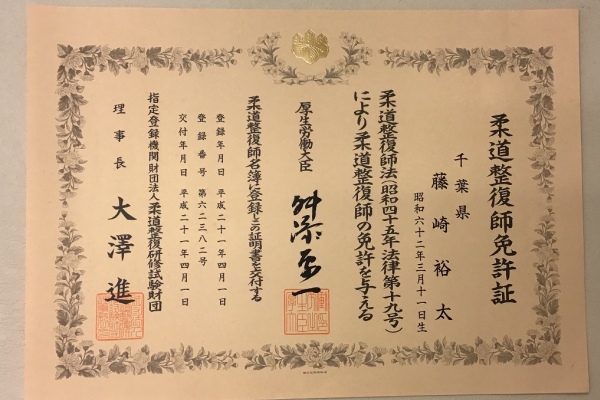 柔道整復師免許証
千葉県
藤崎裕太
昭和六十二年三月十一日生
柔道整復師法(昭和四十五年法律第十九号)
により柔道整復師の免許を与える
厚生労働大臣
舛添要一
柔道整復師名簿に登録しこの証明書を交付する
登録年月日 平成二十一年四月一日
登録番号 第六二三八二号
交付年月日 平成二十一年四月一日
指定登録機関財団法人柔道整復研修試験財団
理事長 大澤進